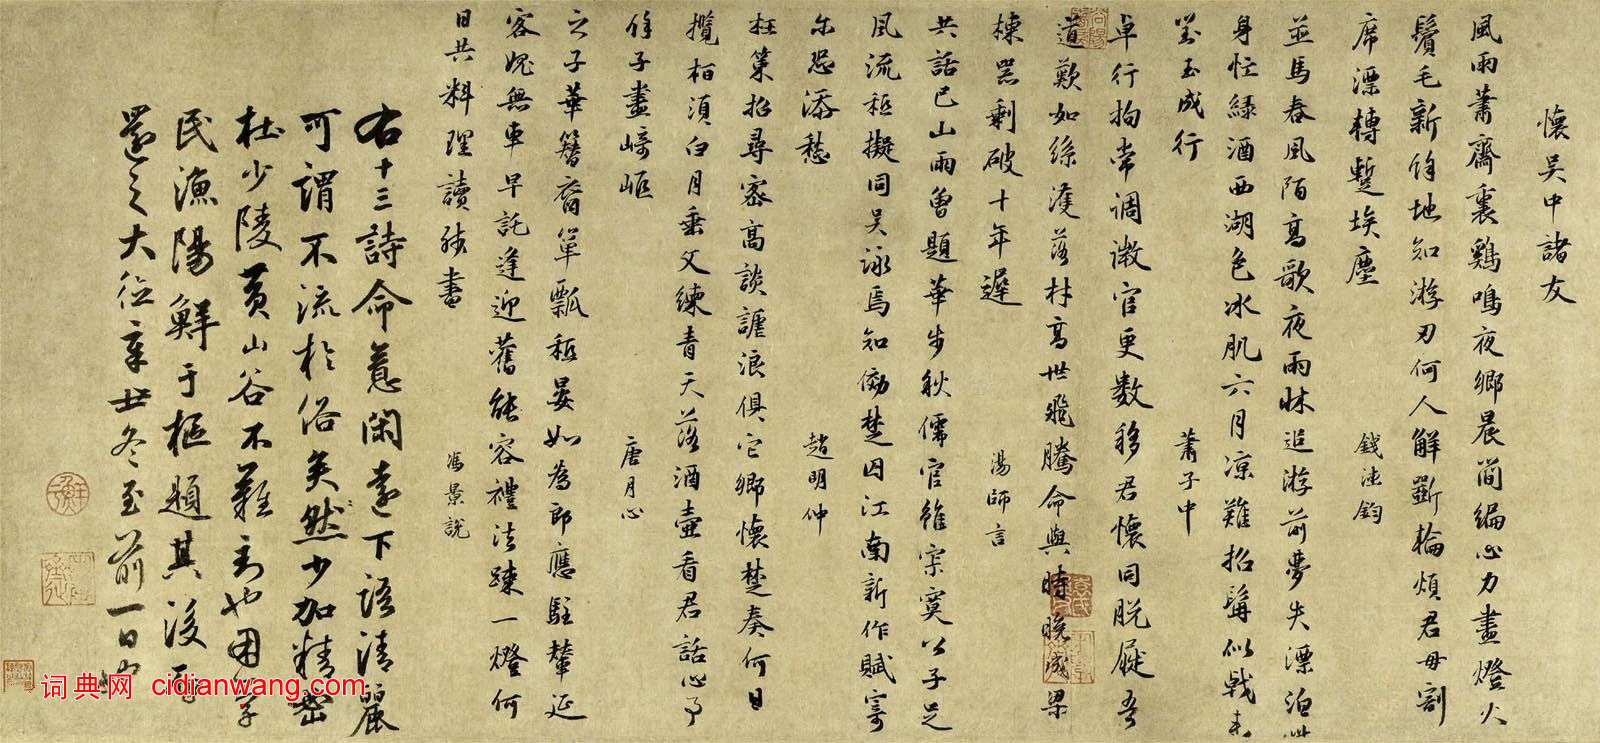 懷吳中諸友
風雨蕭齋裏鷄鳴夜鄉晨簡編心力盡燈火
鬢毛新餘地知游刃何人解斲輪煩君毋割
席漂轉蹔埃塵
錢德鈞
並馬春風陌高歌夜雨牀追游前夢失漂泊
身忙綠酒西湖色冰肌六月涼難招髯似戟
對玉成行
蕭子中
卓行拘常調微官更數移君懷同脫屣吾
道歎如絲濩落材高世飛騰命與時晚成梁
棟器剩破十年遲
湯師言
共話巴山雨曾題華步秋儒官雖宗寞公子足
風流秪擬同吳詠焉知傚楚囚江南新作賦寄
尔恐添愁
趙明仲
枉策招尋密高談謔浪俱它鄉懷楚奏何日
攬柏須白月垂父練青天落酒壺看君話心事
餘子盡崎嶇
唐月心
之子華簪裔簞瓢秪晏如為郎應駐輦延
客媿無車早託逢迎舊能容禮法踈一燈何
日共料理讀殘書
馮景說
右十三詩命意閑遠下語清麗
可謂不流於俗矣然少加精密
杜少陵黃山谷不難到也困學
民漁陽鮮于樞題其後
還之大德辛丑冬至前一日也
词典网 cidianwang.com